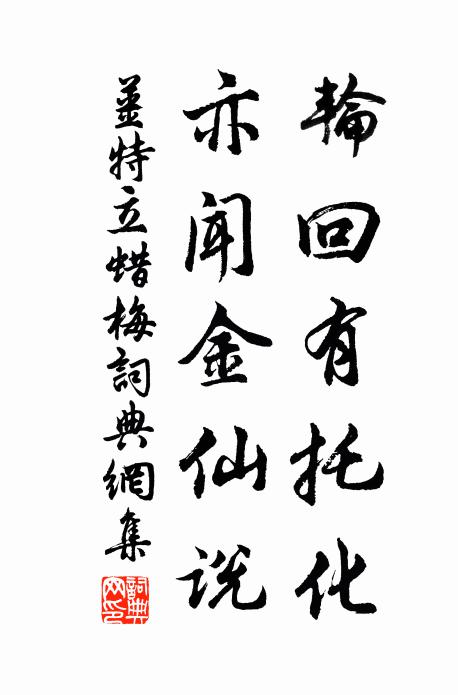 輪回有托化
亦闻金仙说
姜特立蜡梅詞典網集
詞典网印